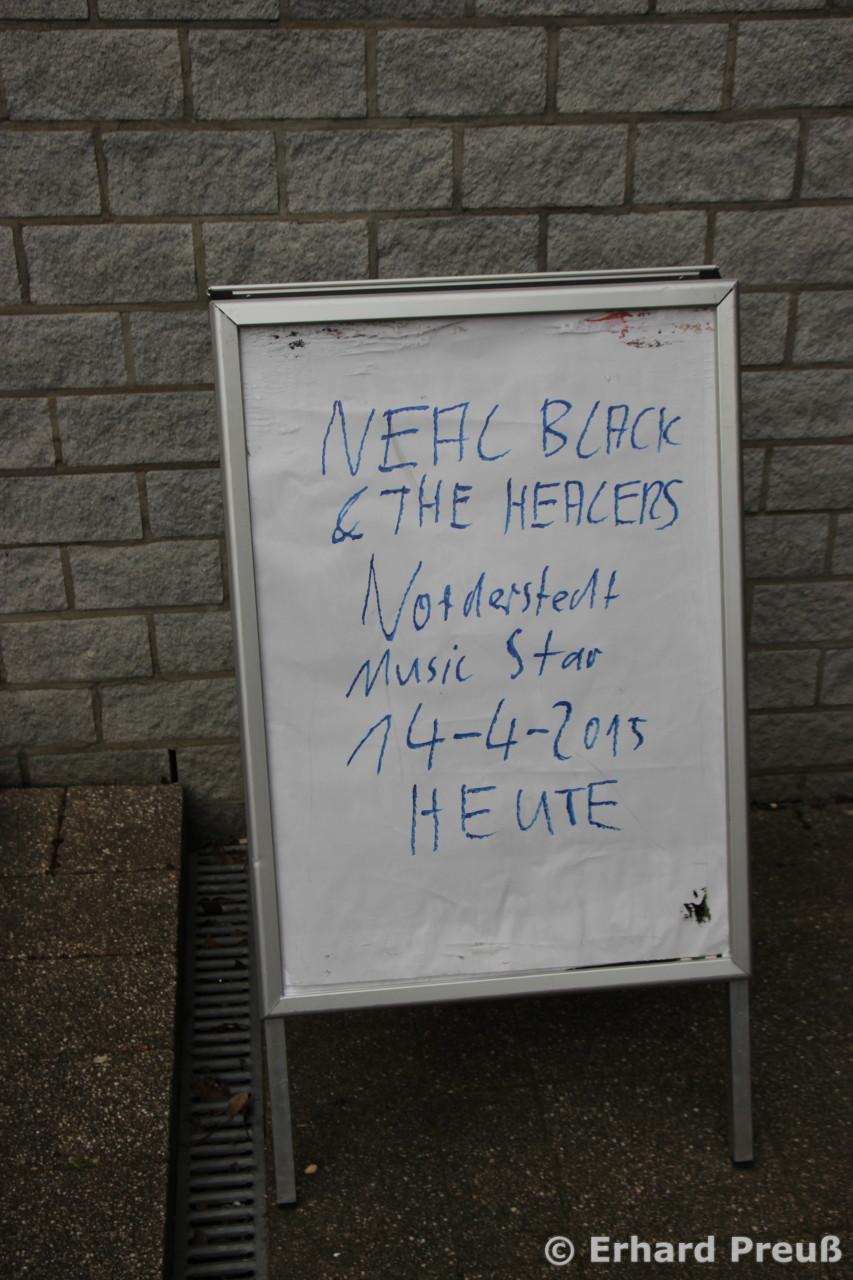 NEAL BLACK
& THE HEALERS
Norderstedt
Music Star
14-4-2015
HEUTE
© Erhard Preuß